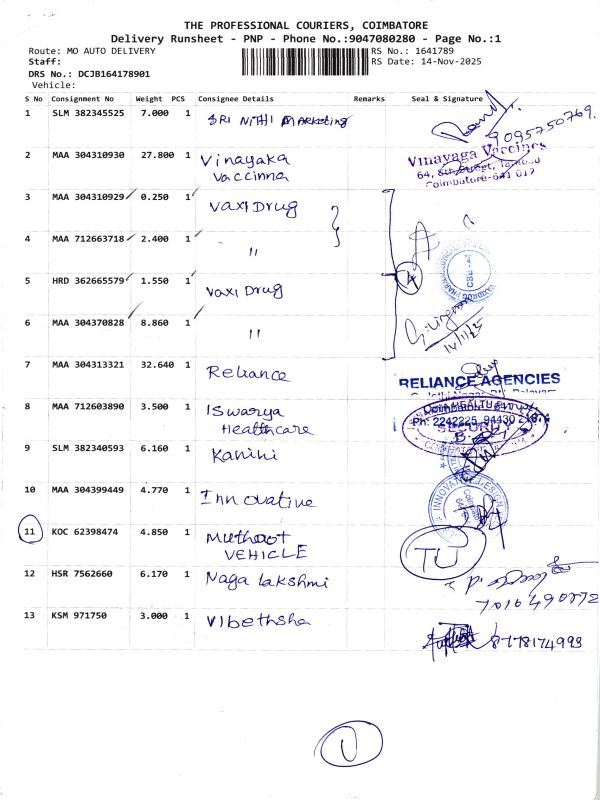 THE PROFESSIONAL COURIERS, COIMBATORE
Delivery Runsheet - PNP - Phone No.:9047080280 - Page No.:1
Route: MO AUTO DELIVERY RS No.: 1641789
Staff: RS Date: 14-Nov-2025
DRS No.: DCJB164178901
Vehicle:
S No Consignment No Weight PCS Consignee Details Remarks Seal & Signature
1 SLM 382345525 7.000 1 SRI NITHI Marketing 9095750769.
2 MAA 304310930 27.800 1 Vinayaka Vaccinna Vinayaga Vaccines
64, 8th Street,
Coimbatore-641 012
3 MAA 304310929 0.250 1 Vaxi Drug
4 MAA 712663718 2.400 1 " 4
CBE-44
5 HRD 362665579 1.550 1 Vaxi Drug
6 MAA 304370828 8.860 1 " 14/11/25
7 MAA 304313321 32.640 1 Reliance RELIANCE AGENCIES
8 MAA 712603890 3.500 1 Iswarya Healthcare
Ph: 2242225, 94430
SECURITY
9 SLM 382340593 6.160 1 Kanini
10 MAA 304399449 4.770 1 Innovative
11 KOC 62398474 4.850 1 Muthoot VEHICLE TU
12 HSR 7562660 6.170 1 Naga Lakshmi
13 KSM 971750 3.000 1 Vibethsha 8778174993